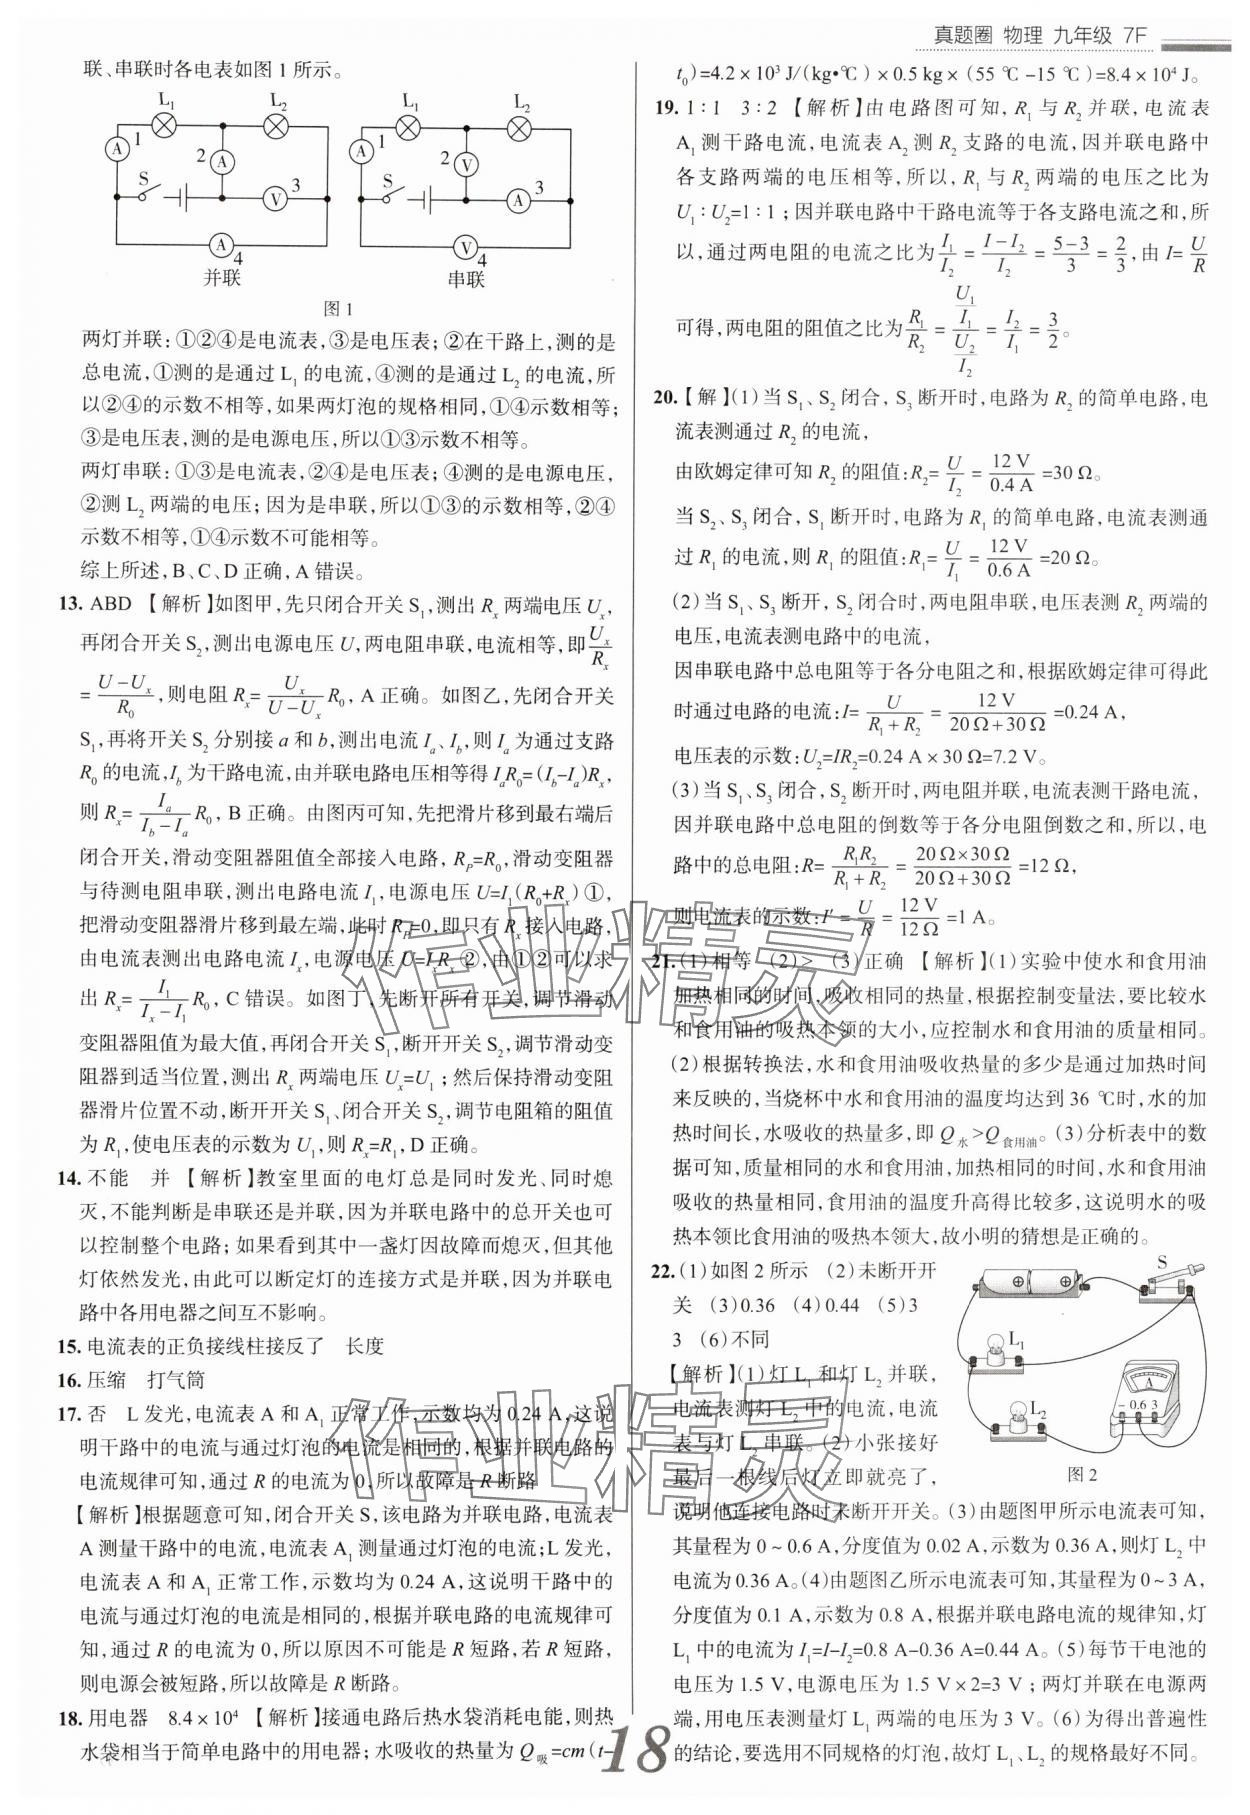 真题圈 物理 九年级 7F
联、串联时各电表如图 1 所示。
L₁ L₂ A 1 2 A S V 3 A 4 并联
L₁ L₂ A 1 2 V S A 3 V 4 串联
图 1
两灯并联：①②④是电流表，③是电压表；②在干路上，测的是
总电流，①测的是通过 L₁ 的电流，④测的是通过 L₂ 的电流，所
以②④的示数不相等，如果两灯泡的规格相同，①④示数相等；
③是电压表，测的是电源电压，所以①③示数不相等。
两灯串联：①③是电流表，②④是电压表；④测的是电源电压，
②测 L₂ 两端的电压；因为是串联，所以①③的示数相等，②④
示数不相等，①④示数不可能相等。
综上所述，B、C、D 正确，A 错误。
13. ABD 【解析】如图甲，先只闭合开关 S₁，测出 Rₓ 两端电压 Uₓ，
再闭合开关 S₂，测出电源电压 U，两电阻串联，电流相等，即 Uₓ/Rₓ
= (U－Uₓ)/R₀，则电阻 Rₓ= Uₓ/(U－Uₓ) R₀，A 正确。如图乙，先闭合开关
S₁，再将开关 S₂ 分别接 a 和 b，测出电流 Iₐ、I_b，则 Iₐ 为通过支路
R₀ 的电流，I_b 为干路电流，由并联电路电压相等得 IₐR₀=(I_b–Iₐ)Rₓ，
则 Rₓ= Iₐ/(I_b－Iₐ) R₀，B 正确。由图丙可知，先把滑片移到最右端后
闭合开关，滑动变阻器阻值全部接入电路，R_P=R₀，滑动变阻器
与待测电阻串联，测出电路电流 I₁，电源电压 U=I₁(R₀+Rₓ)①，
把滑动变阻器滑片移到最左端，此时 R_P=0，即只有 Rₓ 接入电路，
由电流表测出电路电流 Iₓ，电源电压 U=IₓRₓ ②，由①②可以求
出 Rₓ= I₁/(Iₓ－I₁) R₀，C 错误。如图丁，先断开所有开关，调节滑动
变阻器阻值为最大值，再闭合开关 S₁，断开开关 S₂，调节滑动变
阻器到适当位置，测出 Rₓ 两端电压 Uₓ=U₁；然后保持滑动变阻
器滑片位置不动，断开开关 S₁、闭合开关 S₂，调节电阻箱的阻值
为 R₁，使电压表的示数为 U₁，则 Rₓ=R₁，D 正确。
14. 不能 并 【解析】教室里面的电灯总是同时发光、同时熄
灭，不能判断是串联还是并联，因为并联电路中的总开关也可
以控制整个电路；如果看到其中一盏灯因故障而熄灭，但其他
灯依然发光，由此可以断定灯的连接方式是并联，因为并联电
路中各用电器之间互不影响。
15. 电流表的正负接线柱接反了 长度
16. 压缩 打气筒
17. 否 L 发光，电流表 A 和 A₁ 正常工作，示数均为 0.24 A，这说
明干路中的电流与通过灯泡的电流是相同的，根据并联电路的
电流规律可知，通过 R 的电流为 0，所以故障是 R 断路
【解析】根据题意可知，闭合开关 S，该电路为并联电路，电流表
A 测量干路中的电流，电流表 A₁ 测量通过灯泡的电流；L 发光，
电流表 A 和 A₁ 正常工作，示数均为 0.24 A，这说明干路中的
电流与通过灯泡的电流是相同的，根据并联电路的电流规律可
知，通过 R 的电流为 0，所以原因不可能是 R 短路，若 R 短路，
则电源会被短路，所以故障是 R 断路。
18. 用电器 8.4×10⁴ 【解析】接通电路后热水袋消耗电能，则热
水袋相当于简单电路中的用电器；水吸收的热量为 Q吸=cm(t–
t₀)=4.2×10³ J/(kg•℃)×0.5 kg×(55 ℃–15 ℃)=8.4×10⁴ J。
19. 1∶1 3∶2 【解析】由电路图可知，R₁ 与 R₂ 并联，电流表
A₁ 测干路电流，电流表 A₂ 测 R₂ 支路的电流，因并联电路中
各支路两端的电压相等，所以，R₁ 与 R₂ 两端的电压之比为
U₁∶U₂=1∶1；因并联电路中干路电流等于各支路电流之和，所
以，通过两电阻的电流之比为 I₁/I₂ = (I－I₂)/I₂ = (5－3)/3 = 2/3，由 I= U/R
可得，两电阻的阻值之比为 R₁/R₂ = (U₁/I₁)/(U₂/I₂) = I₂/I₁ = 3/2。
20.【解】(1)当 S₁、S₂ 闭合，S₃ 断开时，电路为 R₂ 的简单电路，电
流表测通过 R₂ 的电流，
由欧姆定律可知 R₂ 的阻值：R₂= U/I₂ = 12 V/0.4 A =30 Ω。
当 S₂、S₃ 闭合，S₁ 断开时，电路为 R₁ 的简单电路，电流表测通
过 R₁ 的电流，则 R₁ 的阻值：R₁= U/I₁ = 12 V/0.6 A =20 Ω。
(2)当 S₁、S₃ 断开，S₂ 闭合时，两电阻串联，电压表测 R₂ 两端的
电压，电流表测电路中的电流，
因串联电路中总电阻等于各分电阻之和，根据欧姆定律可得此
时通过电路的电流：I= U/(R₁＋R₂) = 12 V/(20 Ω＋30 Ω) =0.24 A，
电压表的示数：U₂=IR₂=0.24 A×30 Ω=7.2 V。
(3)当 S₁、S₃ 闭合，S₂ 断开时，两电阻并联，电流表测干路电流，
因并联电路中总电阻的倒数等于各分电阻倒数之和，所以，电
路中的总电阻：R= R₁R₂/(R₁＋R₂) = (20 Ω×30 Ω)/(20 Ω＋30 Ω) =12 Ω，
则电流表的示数：I′ = U/R = 12 V/12 Ω =1 A。
21. (1)相等 (2)> (3)正确 【解析】(1)实验中使水和食用油
加热相同的时间，吸收相同的热量，根据控制变量法，要比较水
和食用油的吸热本领的大小，应控制水和食用油的质量相同。
(2)根据转换法，水和食用油吸收热量的多少是通过加热时间
来反映的，当烧杯中水和食用油的温度均达到 36 ℃时，水的加
热时间长，水吸收的热量多，即 Q水>Q食用油。(3)分析表中的数
据可知，质量相同的水和食用油，加热相同的时间，水和食用油
吸收的热量相同，食用油的温度升高得比较多，这说明水的吸
热本领比食用油的吸热本领大，故小明的猜想是正确的。
22. (1)如图 2 所示 (2)未断开开
关 (3)0.36 (4)0.44 (5)3
3 (6)不同
【解析】(1)灯 L₁ 和灯 L₂ 并联，
电流表测灯 L₂ 中的电流，电流
表与灯 L₂ 串联。(2)小张接好
最后一根线后灯立即就亮了，
S L₁ L₂ A – 0.6 3
图 2
说明他连接电路时未断开开关。(3)由题图甲所示电流表可知，
其量程为 0～0.6 A，分度值为 0.02 A，示数为 0.36 A，则灯 L₂ 中
电流为 0.36 A。(4)由题图乙所示电流表可知，其量程为 0～3 A，
分度值为 0.1 A，示数为 0.8 A，根据并联电路电流的规律知，灯
L₁ 中的电流为 I₁=I–I₂=0.8 A–0.36 A=0.44 A。(5)每节干电池的
电压为 1.5 V，电源电压为 1.5 V×2=3 V；两灯并联在电源两
端，用电压表测量灯 L₁ 两端的电压为 3 V。(6)为得出普遍性
的结论，要选用不同规格的灯泡，故灯 L₁、L₂ 的规格最好不同。
18
作业精灵
作业精灵